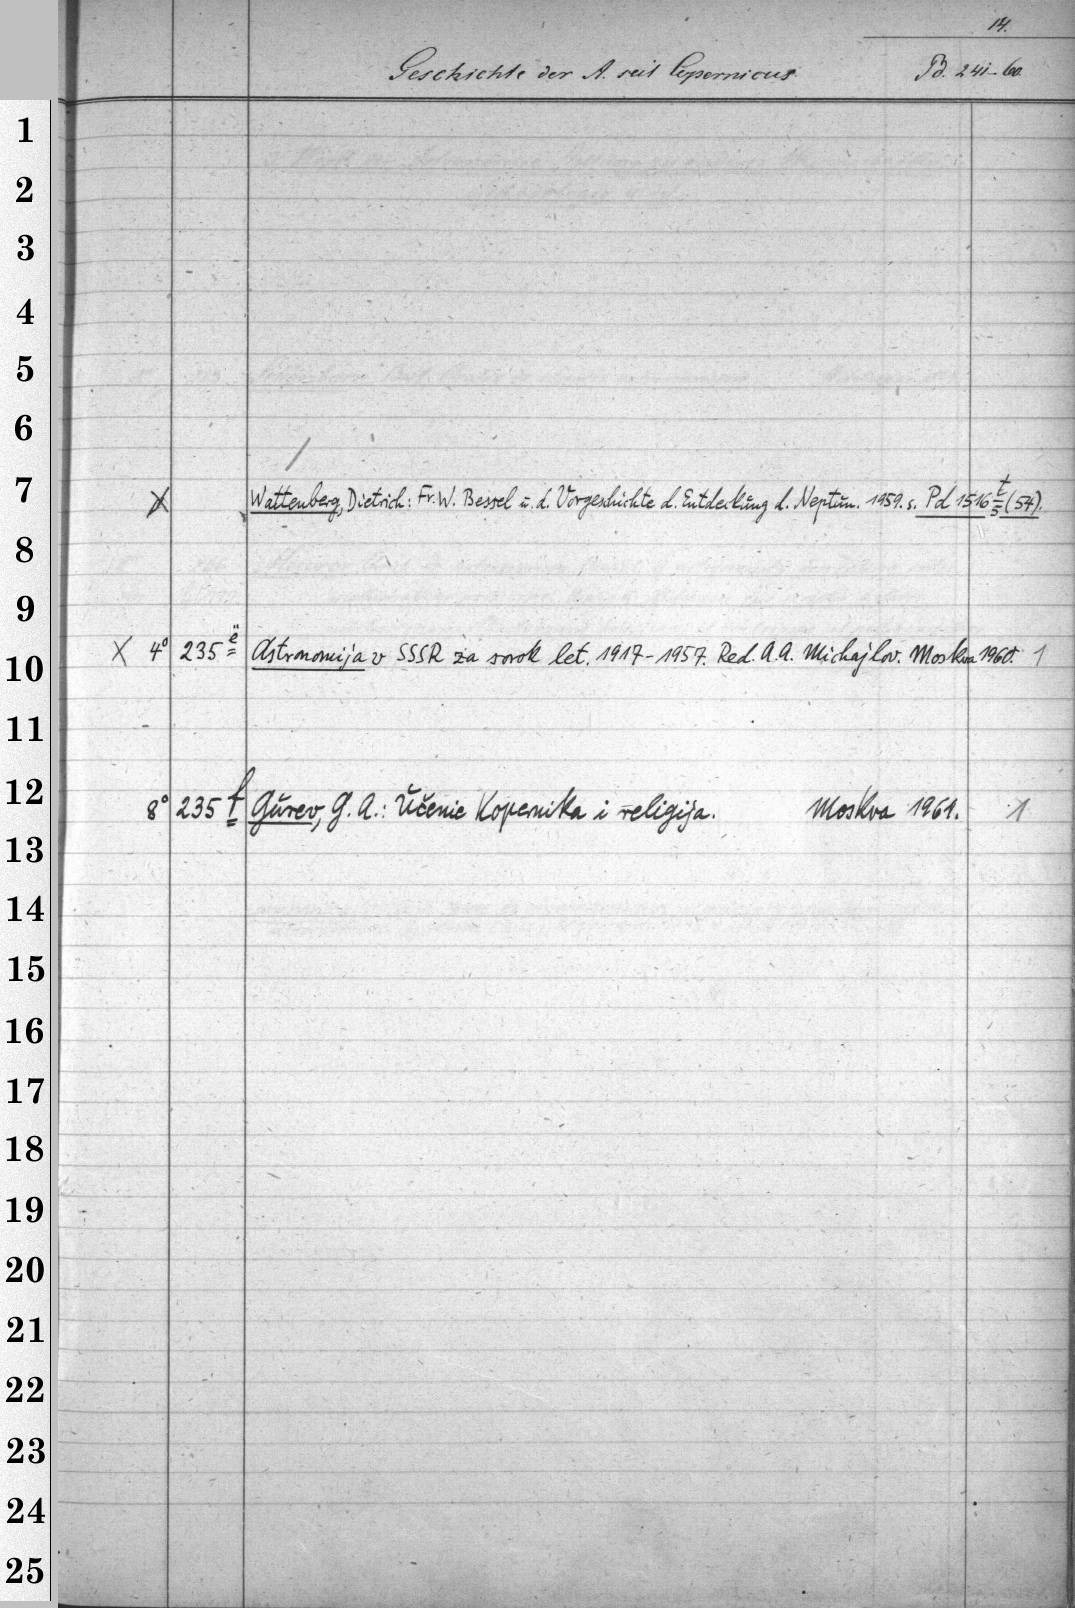 14.
Geschichte der A. seit Copernicus. Pd. 241-60
1
2
3
4
5
6
7 X Wattenberg, Dietrich: Fr. W. Bessel u. d. Vorgeschichte d. Entdeckung d. Neptun. 1959. s. Pd 1516 t/5 (54).
8
9
10 X 4° 235 ë Astronomija v SSSR za sorok let. 1917-1957. Red. A. A. Michajlov. Moskva 1960. 1
11
12 8° 235 f Gurev, G. A.: Učenie Kopernika i religija. Moskva 1961. 1
13
14
15
16
17
18
19
20
21
22
23
24
25